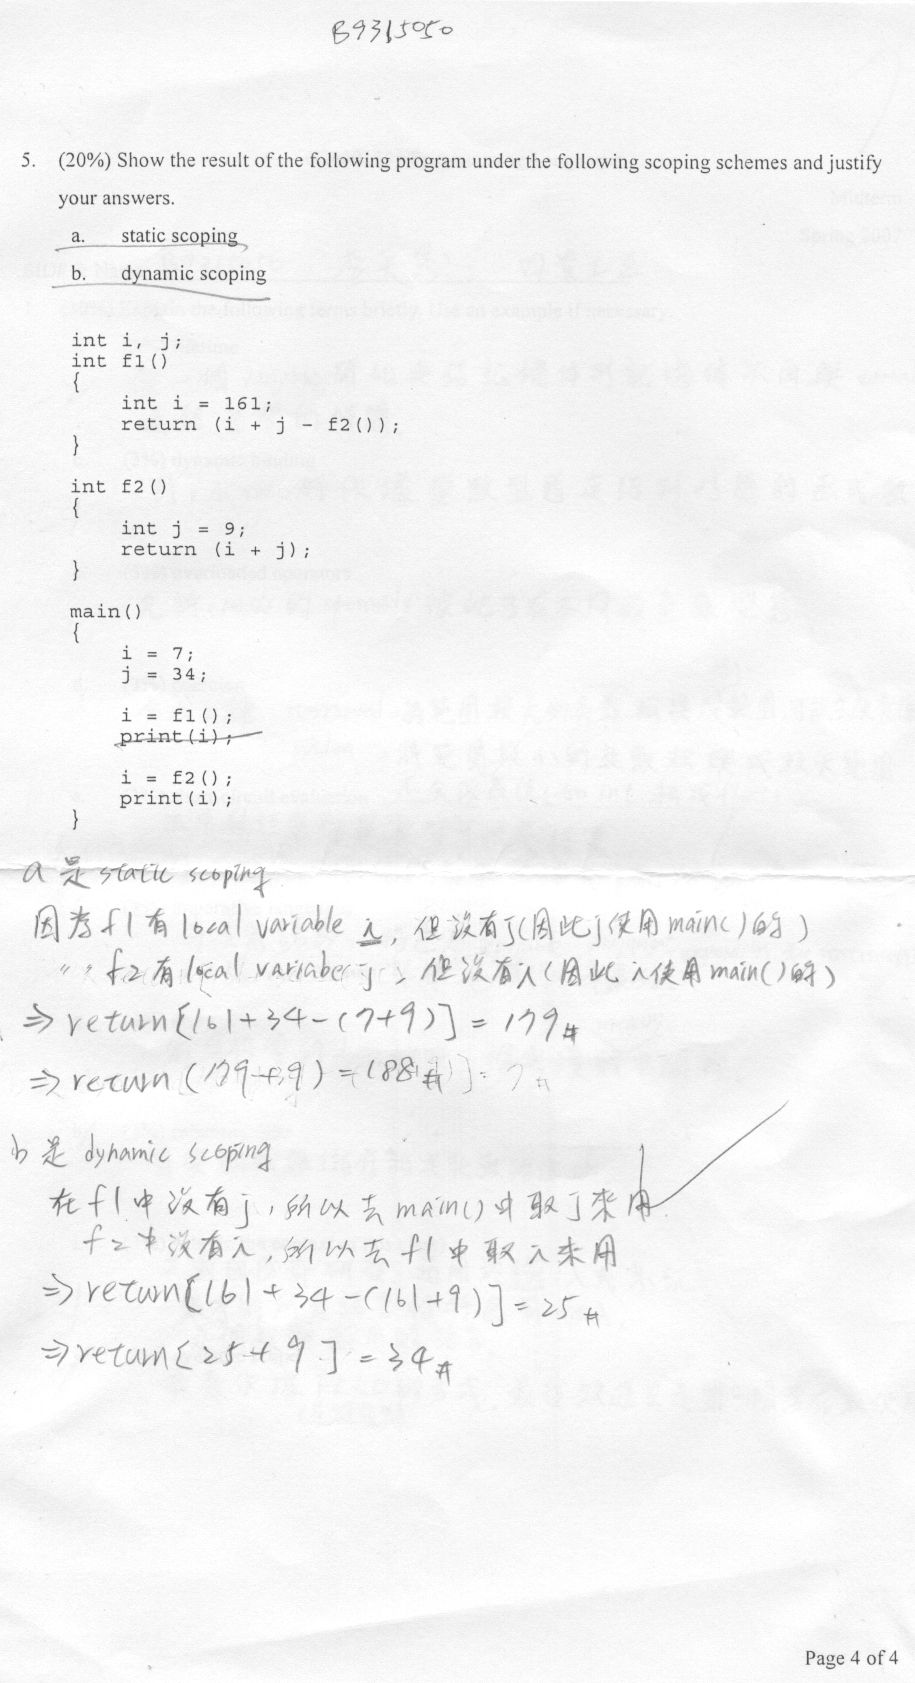 B9315050
5. (20%) Show the result of the following program under the following scoping schemes and justify
your answers.
a. static scoping
b. dynamic scoping
int i, j;
int f1()
{
int i = 161;
return (i + j - f2());
}
int f2()
{
int j = 9;
return (i + j);
}
main()
{
i = 7;
j = 34;
i = f1();
print(i);
i = f2();
print(i);
}
a 是 static scoping
因為 f1 有 local variable i, 但沒有j(因此j使用main()的)
〃 〃 f2 有 local variaber j, 但沒有i(因此 i使用main()的)
⇒ return[161+34-(7+9)] = 179#
⇒ return (179+9) = 188#
b 是 dynamic scoping
在 f1 中沒有j, 所以去 main() 中取j來用
f2 中沒有i, 所以去 f1 中取 i 來用
⇒ return[161+34-(161+9)] = 25#
⇒ return[25+9] = 34#
Page 4 of 4